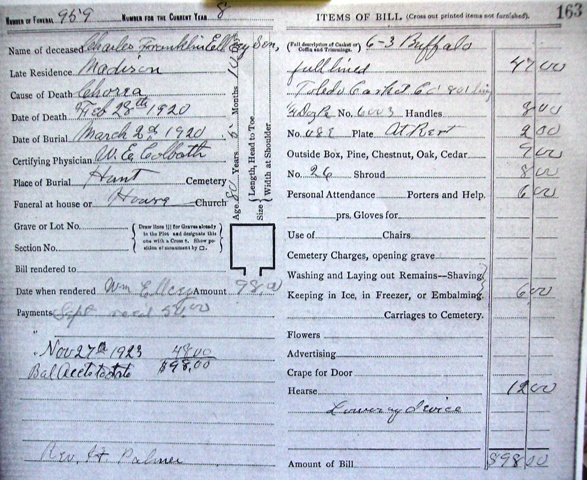 Number of Funeral 959 Number for the Current Year 8
Name of deceased Charles Franklin Ellery Son,
Late Residence Madison
Cause of Death Chorea
Date of Death Feb 28th 1920
Date of Burial March 2nd 1920
Certifying Physician W. E. Colbath
Place of Burial Hunt Cemetery
Funeral at house or House Church
Age 80 Years Months
Size { Length, Head to Toe
Width at Shoulder
Grave or Lot No.
Section No.
{ Draw lines for Graves already in the Plot and designate this one with a Cross X. Show position of monument by □. }
Bill rendered to
Date when rendered Wm Ellery Amount 98.00
Payments Sept recd 50.00
"
Nov 27th 1923 48.00
Bal acct to date $98.00
Rev. H. Palmer
ITEMS OF BILL (Cross out printed items not furnished). 163
(Full description of Casket or Coffin and Trimmings. 6-3 Buffalo
full lined 47.00
Toledo Casket Co 801 lining
No. 6003 Handles 8.00
No. Plate At Rest 2.00
Outside Box, Pine, Chestnut, Oak, Cedar 9.00
No. 26 Shroud 8.00
Personal Attendance Porters and Help. 6.00
prs. Gloves for
Use of Chairs
Cemetery Charges, opening grave
Washing and Laying out Remains—Shaving
Keeping in Ice, in Freezer, or Embalming. 6.00
Carriages to Cemetery.
Flowers
Advertising
Crape for Door
Hearse 12.00
Lowering device
Amount of Bill $98.00